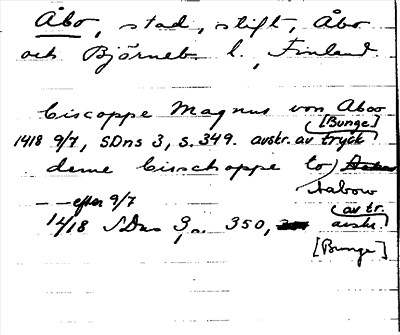 Åbo, stad, stift, Åbo
och Björneb. l., Finland.
biscoppe Magnus von Aboo
[Bunge]
1418 9/7, SDns 3, s. 349. avskr. av tryck
deme bisschoppe to
Aabow
— — efter 9/7 av tr.
1418 SDns 3, s. 350, avskr.
[Bunge]